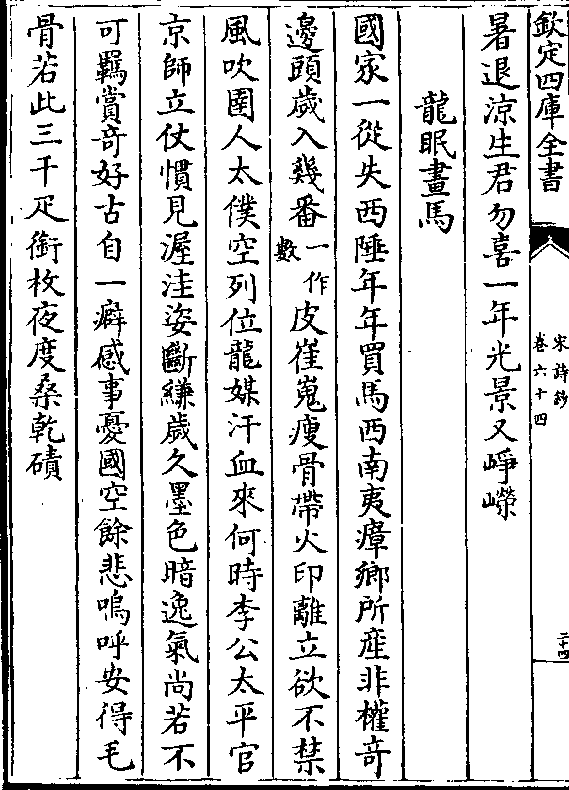 欽定四庫全書
宋詩鈔
卷六十四
二十四
暑退涼生君勿喜一年光景又崢嶸
龍眠畫馬
國家一從失西陲年年買馬西南夷瘴鄉所産非權奇
邊頭歲入幾番一作數皮崔嵬瘦骨帶火印離立欲不禁
風吹圉人太僕空列位龍媒汗血來何時李公太平官
京師立仗慣見渥洼姿斷縑歲久墨色暗逸氣尚若不
可羈賞竒好古自一癖感事憂國空餘悲嗚呼安得毛
骨若此三千疋銜枚夜度桑乾磧